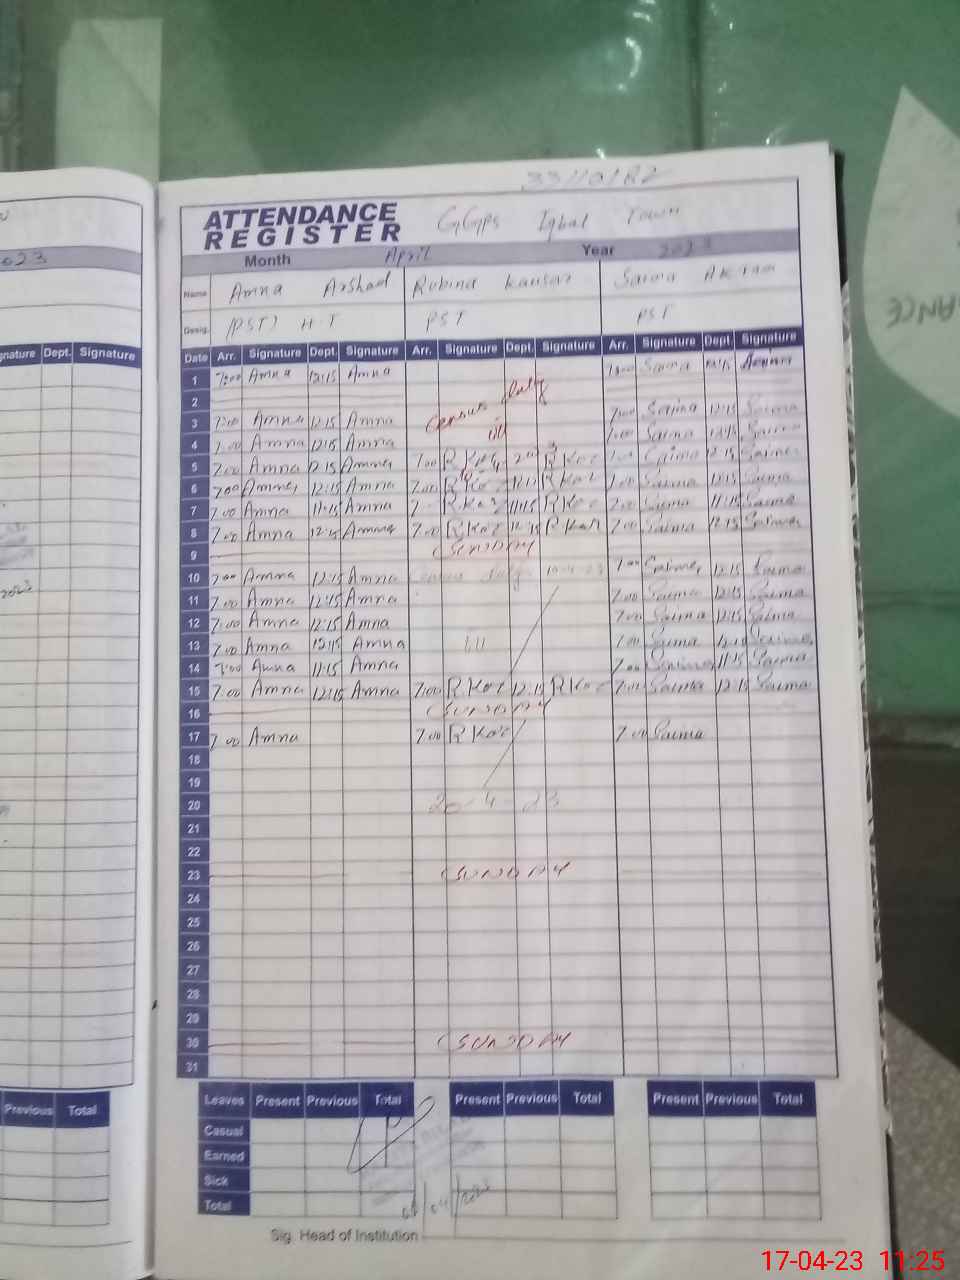 ATTENDANCE
REGISTER
GGPS Iqbal Town
Month April Year 2023
Name Amna Arshad Rubina Kausar Saima Akram
Desig. (PST) H.T PST PST
Date Arr. Signature Dept. Signature Arr. Signature Dept. Signature Arr. Signature Dept. Signature
1 7:00 Amna 12:15 Amna Saima
2
Census duty
3 7:00 Amna 12:15 Amna 7:00 Saima 12:15 Saima
4 7:00 Amna 12:15 Amna 7:00 Saima 12:15 Saima
5 7:00 Amna 12:15 Amna 7:00 Saima 12:15 Saima
6 7:00 Amna 12:15 Amna 7:00 7:00 Saima 12:15 Saima
7 7:00 Amna 11:15 Amna 11:15 7:00 Saima 11:15 Saima
8 7:00 Amna 12:15 Amna 7:00 12:15 7:00 Saima 12:15 Saima
9 (SUNDAY
10 7:00 Amna 12:15 Amna Census duty 10-4-23 7:00 Saima 12:15 Saima
11 7:00 Amna 12:15 Amna 7:00 Saima 12:15 Saima
12 7:00 Amna 12:15 Amna 7:00 Saima 12:15 Saima
13 7:00 Amna 12:15 Amna 7:00 Saima Saima
14 7:00 Amna 11:15 Amna 7:00 Saima 11:15 Saima
15 7:00 Amna 12:15 Amna 7:00 12:15 7:00 Saima 12:15 Saima
16 (SUNDAY
17 7:00 Amna 7:00 7:00 Saima
18
19
20 20-4-23
21
22
23 (SUNDAY
24
25
26
27
28
29
30 (SUNDAY
31
Leaves Present Previous Total Present Previous Total Present Previous Total
Casual
Earned
Sick
Total
Sig. Head of Institution
2023
Dept. Signature
Previous Total
17-04-23 11:25